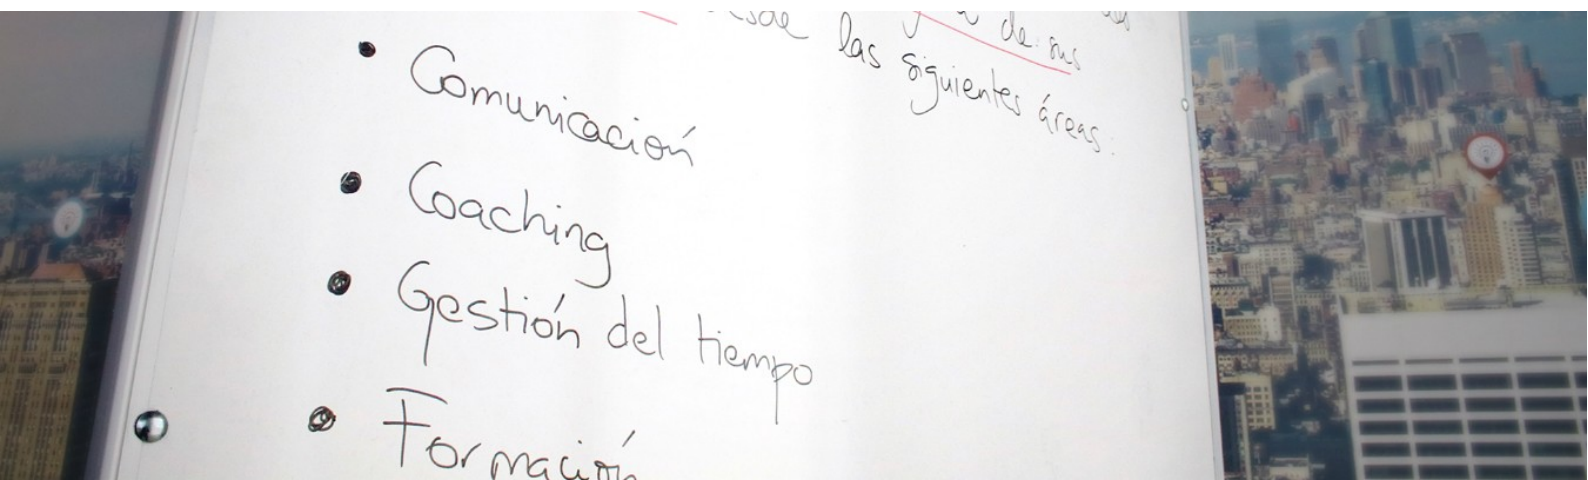 desde
de sus
las siguientes áreas:
• Comunicación
• Coaching
• Gestión del tiempo
• Formación